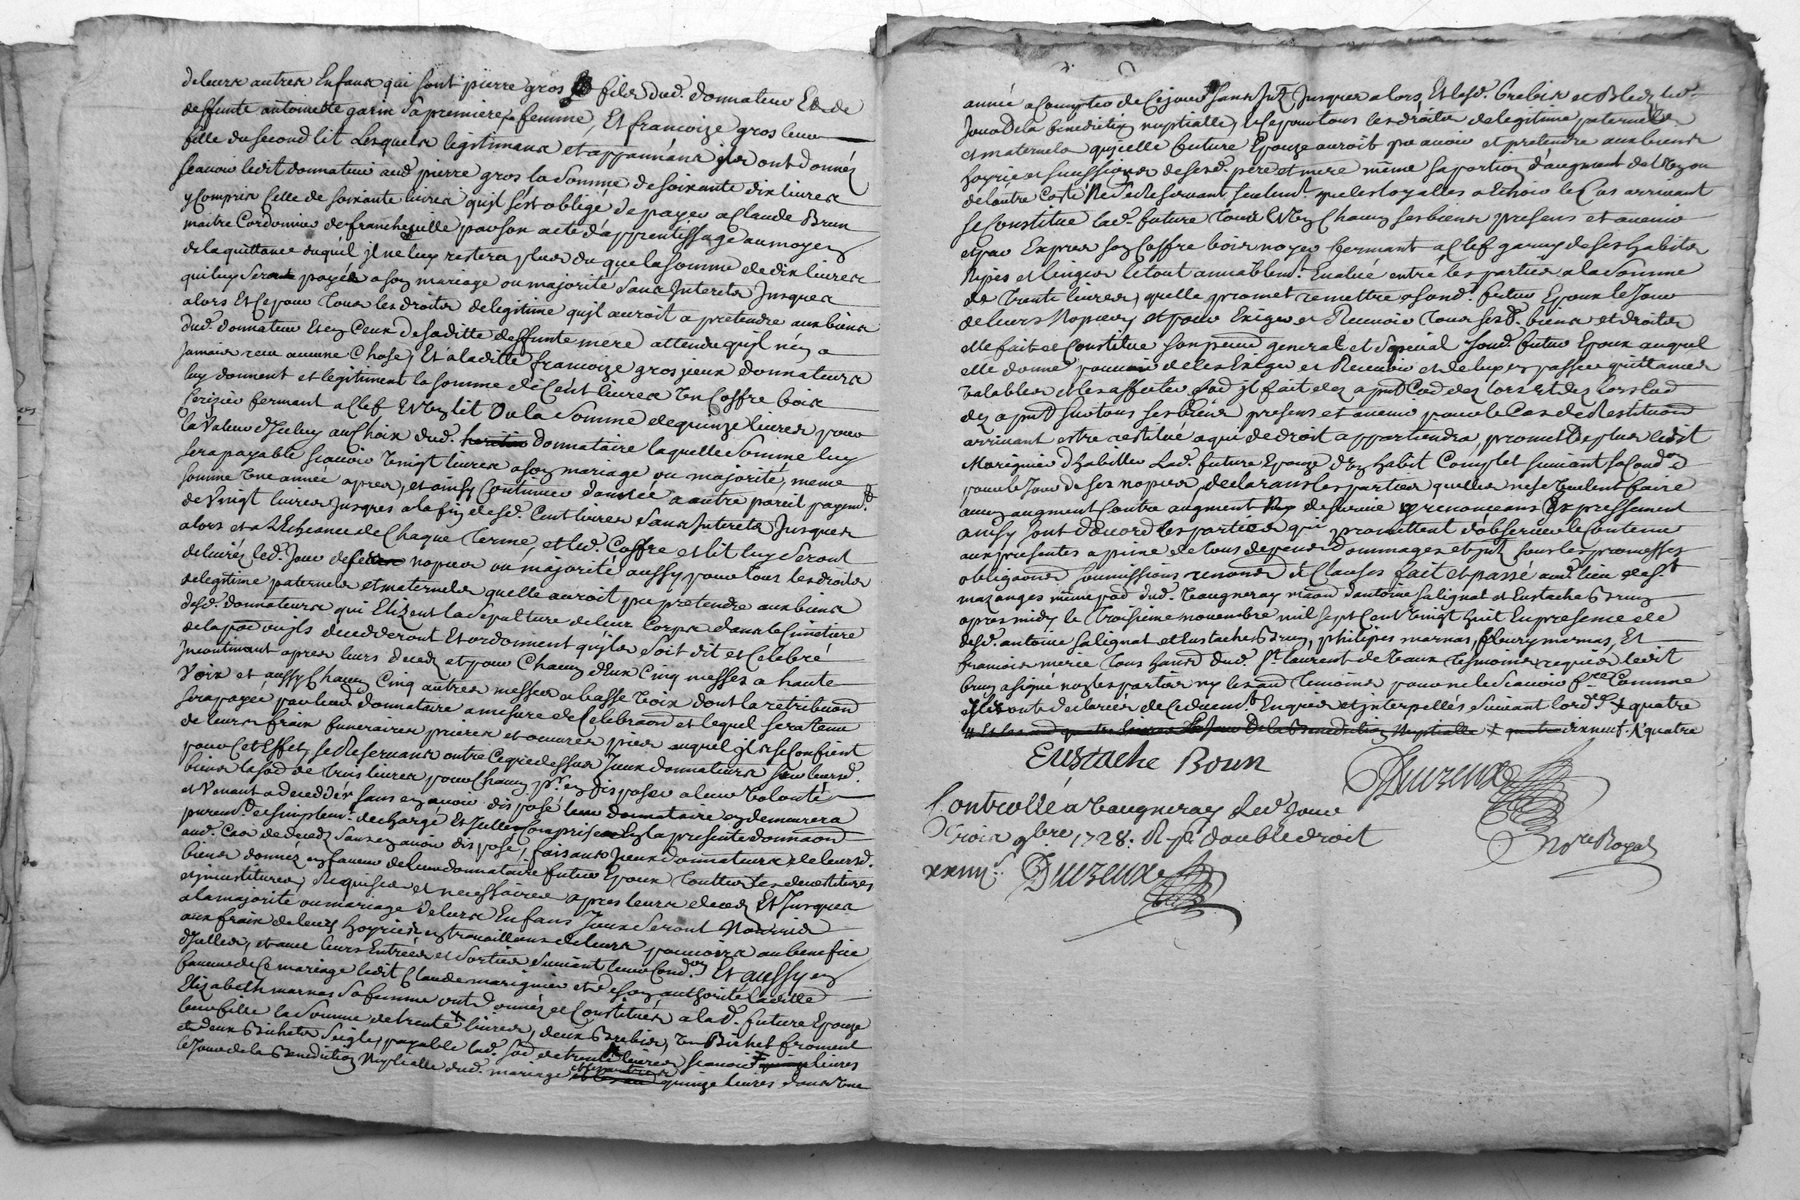 deleurs autres Enfans qui sont pierre gros fils dud. donnateur Et de
deffunte antoinette garin sa premiere femme, Et francoize gros leur
fille du second lit Lesquels legitimant et appannant ils ont donnéz
scavoir ledit donnateur aud. pierre gros la somme de soixante dix livres
y Compris Celle de soixante livres qu'il s'est oblige de payer a Claude Brun
maitre Cordonnier de francheville pour son acte d'apprentissage au moyen
de la quittance duquel il ne luy restera plus du que la somme de dix livres
qui luy sera payée a son mariage ou majorité sans Interets Jusques
alors Et Ce pour Tous les droits de legitime qu'il auroit a pretendre aux biens
dud. donnateur Et en Ceux de saditte deffunte mere attendu qu'il n'en a
Jamais recu aucune Chose, Et a laditte francoize gros jeux donnateurs
luy donnent et legitiment la somme de Cent livres Un Coffre bois
Cerizier fermant a Clef Et Un lit De la somme de quinze livres pour
la Valeur d'Iceluy au Choix dud. heritier donnataire laquelle somme luy
sera payable scavoir Vingt livres a son mariage ou majorité, meme
somme Une année apres, et ainsy Continuer d'année a autre pareil payem.t
de Vingt livres Jusques a la fin desd. Cent livres sans Interets Jusques
alors et a L'Echeance de Chaque Terme, et led. Coffre et lit luy seront
delivrés led. Jour de ses nopces ou majorité aussy pour tous les droits
de legitime paternels et maternels quelle auroit pu pretendre aux biens
desd. donnateurs qui Elizent la sepulture de leur Corps dans le Cimetiere
de la p.od ou ils decedderont Et ordonnent qu'il soit dit et Celebré
Incontinant apres leurs deced et pour Chacun d'Eux Cinq messes a haute
Voix et aussy Chacun Cinq autres messes a basse Voix dont la retribuaon
sera payée par leud. donnataire a mesure de Celebraon et lequel sera tenu
de leurs frais funeraires prieres et oeuvres pies auquel ils se Confient
pour Cet Effet, se Reservans outre Ce que dessus Jceux donnateurs sur leursd.
biens la sod de Trois livres pour Chacun pr. En disposer a leur Volonté
et Venant a decedder sans en avoir disposé leur donnataire en demeurera
purem.t et simplem.t dechargé Et Jcelles Comprises En la presente donnaon
aud. Cas de deced sans en avoir disposé, faisans Jceux donnateurs de leursd.
biens donnéz en faveur de leur donnataire futur Epoux Touttes les devestitures
et investitures, Requises et necessaires apres leurs deced Et Jusques
a la majorité ou mariage de leurs Enfans Jceux seront Nourris
aux frais de leurs hoyries en travaillans de leurs pouvoirs au benefice
d'Jcelles, et avec leurs Entrées et sorties suivant leur Cond.on Et aussy en
faveur de Ce mariage ledit Claude marignier et de son authorité laditte
Elizabeth marnas sa femme ont donnés et Constitués a lad. future Epouze
leur fille la somme de trente livres, deux Brebis, Un Bichet froment
et deux Bichets seigle, payable lad. sod de trente livres scavoir livres
le Jour de la Benediction Nuptialle dud. mariage quinze livres dans Une
année a Compter de Ce jour sans Jnt Jusques alors, Et lesd. brebis et Bled led.
Jour De la benediction nuptialle, Et Ce pour tous les droits de legitime paternels
et maternels qu'elle future Epouze auroit pu avoir et pretendre aux biens
hoyrie et successions de sesd. pere et mere même sa portion d'augment de Noyon
de l'autre Costé Ne se Reservant seulem.t que les loyalles a Echoir le Cas arrivant
se Constitue lad. future Tous Et Un Chacun ses biens presens et avenir
et par Expres son Coffre bois noyer fermant a Clef garny de ses habits
Nipes et linges le tout amiablem.t Evalué entre les parties a la somme
de Trente livres, quelle promet remettre a sond. futur Epoux le Jour
de leurs Nopces, et pour Exiger et Recevoir Tous sesd. biens et droits
elle fait et Constitue son procur general et special sond. futur Epoux auquel
elle donne pouvoir de les Exiger et Recevoir et de luy en passer quittances
Valables et les affecter sad il fait dez a pnt Cod dez lors Et dez lors Cod
dez a pnt sur tous ses biens presens et avenir pour le Cas de Restitution
arrivant estre restitué a qui de droit appartiendra, promet de plus ledit
Marignier d'habiller Lad. future Epouze d'Un habit Complet suivant sa Cond.on
pour le Jour de ses nopces, declarans les parties quelles ne se Veulent faire
aucun augment Contre augment Ny de survie y renonceans Expressement
ainsy sont d'accord les parties qui promettent d'observer le Contenu
aux presentes a peine de tous depens dommages et Jnt sous les promesses
obligaons soumissions renonc.s et Clauses fait et passé aud. lieu de S.t
mazanges même p.od dud. Vaugneray maison d'antoine salignat et Eustache Brun
apres midy le Troisieme novembre mil sept Cent Vingt huit En presence de
desd. antoine salignat et Eustache Brun, philipes marnas, fleury marnas, Et
francois merie Tous hans dud. S.t laurent de Vaux Tesmoins requis ledit
brun a signé non les parties ny les aud Temoins pour ne le scavoir f.re Comme
Ils ont declarés de Ce duem.t Enquis et interpellés suivant lord.ce quatre
dixneuf. quatre
Eustache Broun
Duzeux
No.re Royal
Controllé a Vaugneray Led. Jour
Trois 9bre. 1728. R. p.r double droit
xxiiij s.
Duzeux